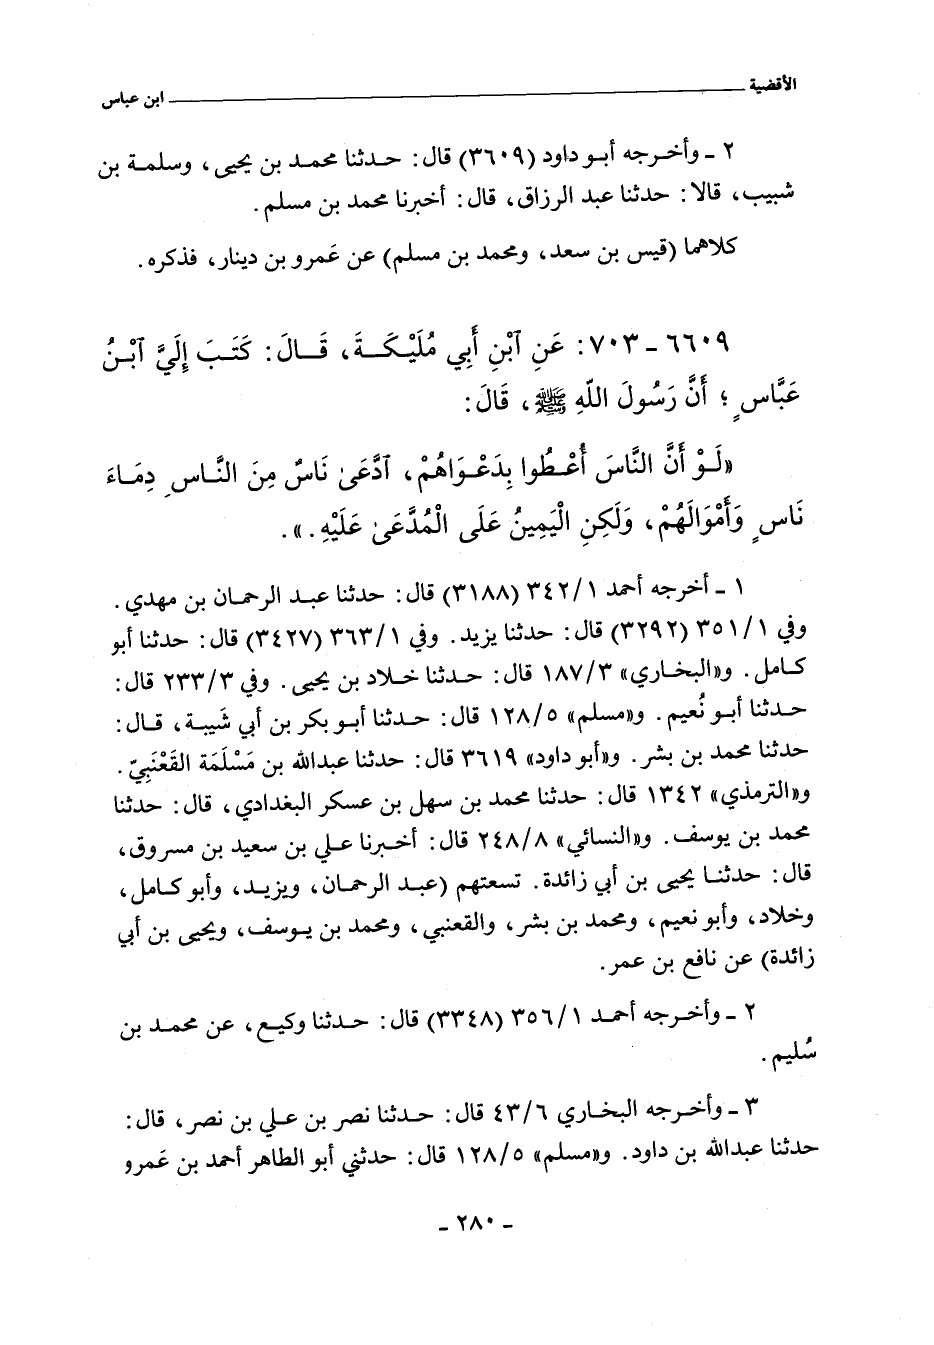 الأقضية ـــــــــــــــــــــــــــــــــــــــــ ابن عباس
٢ ـ وأخرجه أبو داود (٣٦٠٩) قال: حدثنا محمد بن يحيى، وسلمة بن
شبيب، قالا: حدثنا عبد الرزاق، قال: أخبرنا محمد بن مسلم.
كلاهما (قيس بن سعد، ومحمد بن مسلم) عن عَمرو بن دينار، فذكره.
٦٦٠٩ ـ ٧٠٣: عَنِ ٱبْنِ أَبِي مُلَيْكَةَ، قَالَ: كَتَبَ إِلَيَّ ٱبْنُ
عَبَّاسٍ؛ أَنَّ رَسُولَ اللّهِ ﷺ، قَالَ:
«لَوْ أَنَّ النَّاسَ أُعْطُوا بِدَعْوَاهُمْ، ٱدَّعَىٰ نَاسٌ مِنَ النَّاسِ دِمَاءَ
نَاسٍ وَأَمْوَالَهُمْ، وَلَكِنِ الْيَمِينُ عَلَى الْمُدَّعَىٰ عَلَيْهِ.».
١ ـ أخرجه أحمد ٣٤٢/١ (٣١٨٨) قال: حدثنا عبد الرحمان بن مهدي.
وفي ٣٥١/١ (٣٢٩٢) قال: حدثنا يزيد. وفي ٣٦٣/١ (٣٤٢٧) قال: حدثنا أبو
كامل. و«البخاري» ١٨٧/٣ قال: حدثنا خلاد بن يحيى. وفي ٢٣٣/٣ قال:
حدثنا أبو نُعيم. و«مسلم» ١٢٨/٥ قال: حدثنا أبو بكر بن أبي شَيبة، قال:
حدثنا محمد بن بشر. و«أبو داود» ٣٦١٩ قال: حدثنا عبدالله بن مَسْلَمَة القَعْنَبِيّ.
و«الترمذي» ١٣٤٢ قال: حدثنا محمد بن سهل بن عسكر البغدادي، قال: حدثنا
محمد بن يوسف. و«النسائي» ٢٤٨/٨ قال: أخبرنا علي بن سعيد بن مسروق،
قال: حدثنا يحيى بن أبي زائدة. تسعتهم (عبد الرحمان، ويزيد، وأبو كامل،
وخلاد، وأبو نعيم، ومحمد بن بشر، والقعنبي، ومحمد بن يوسف، ويحيى بن أبي
زائدة) عن نافع بن عمر.
٢ ـ وأخرجه أحمد ٣٥٦/١ (٣٣٤٨) قال: حدثنا وكيع، عن محمد بن
سُليم.
٣ ـ وأخرجه البخاري ٤٣/٦ قال: حدثنا نصر بن علي بن نصر، قال:
حدثنا عبدالله بن داود. و«مسلم» ١٢٨/٥ قال: حدثني أبو الطاهر أحمد بن عَمرو
ـ ٢٨٠ ـ